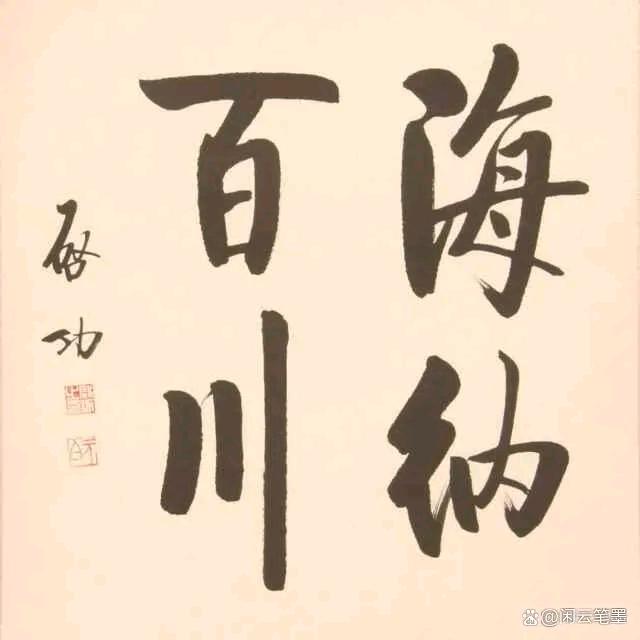 海纳
百川
启功
@闲云笔墨